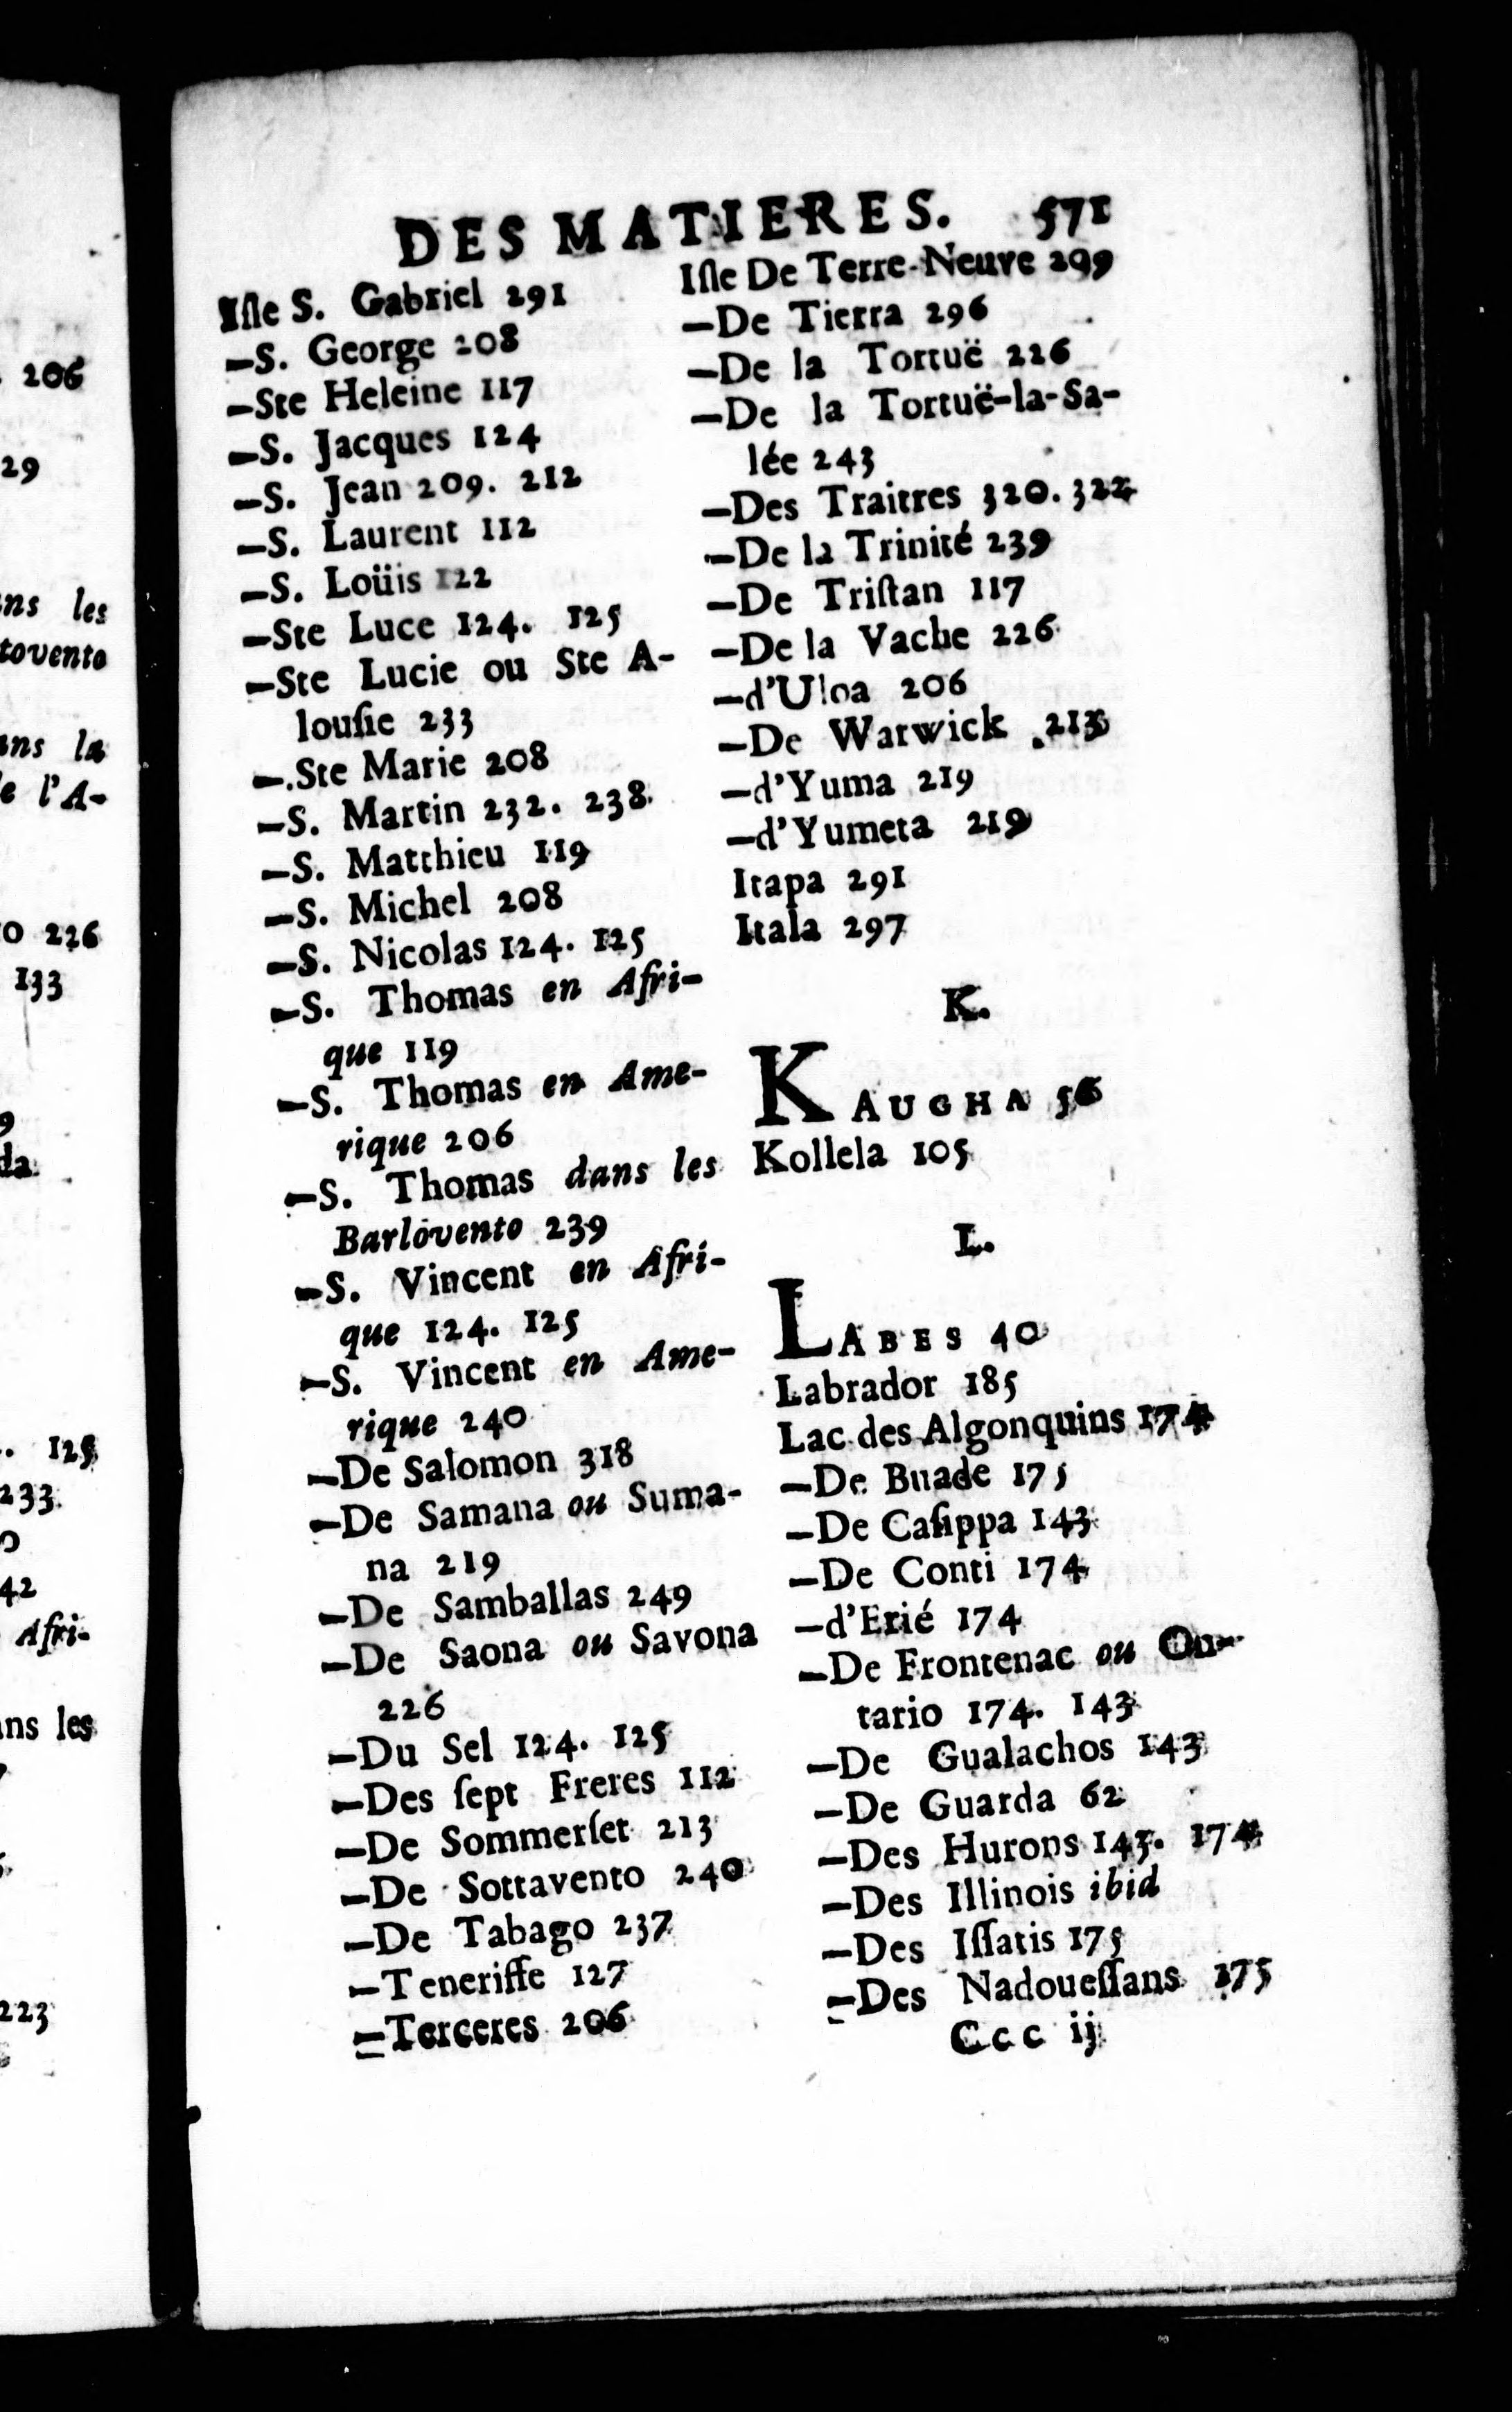 DES MATIERES. 571
Iſle S. Gabriel 291
—S. George 208
—Ste Heleine 117
—S. Jacques 124
—S. Jean 209. 212
—S. Laurent 112
—S. Loüis 122
—Ste Luce 124. 125
—Ste Lucie ou Ste A-
louſie 233
—Ste Marie 208
—S. Martin 232. 238
—S. Matthieu 119
—S. Michel 208
—S. Nicolas 124. 125
—S. Thomas en Afri-
que 119
—S. Thomas en Ame-
rique 206
—S. Thomas dans les
Barlovento 239
—S. Vincent en Afri-
que 124. 125
—S. Vincent en Ame-
rique 240
—De Salomon 318
—De Samana ou Suma-
na 219
—De Samballas 249
—De Saona ou Savona
226
—Du Sel 124. 125
—Des ſept Freres 112
—De Sommerſet 213
—De Sottavento 240
—De Tabago 237
—Teneriffe 127
—Terceres 206
Iſle De Terre-Neuve 299
—De Tierra 296
—De la Tortuë 226
—De la Tortuë-la-Sa-
lée 243
—Des Traitres 320. 322
—De la Trinité 239
—De Triſtan 117
—De la Vache 226
—d'Uloa 206
—De Warwick 213
—d'Yuma 219
—d'Yumeta 219
Itapa 291
Itala 297
K.
KAUGHA 56
Kollela 105
L.
LABES 40
Labrador 185
Lac des Algonquins 174
—De Buade 175
—De Caſippa 143
—De Conti 174
—d'Erié 174
—De Frontenac ou On-
tario 174. 143
—De Gualachos 143
—De Guarda 62
—Des Hurons 143. 174
—Des Illinois ibid
—Des Iſſatis 175
—Des Nadoueſſans 175
Ccc ij
206
29
ns les
tovento
ans la
e l'A-
226
133
9
da
125
233
42
Afri-
ns les
223